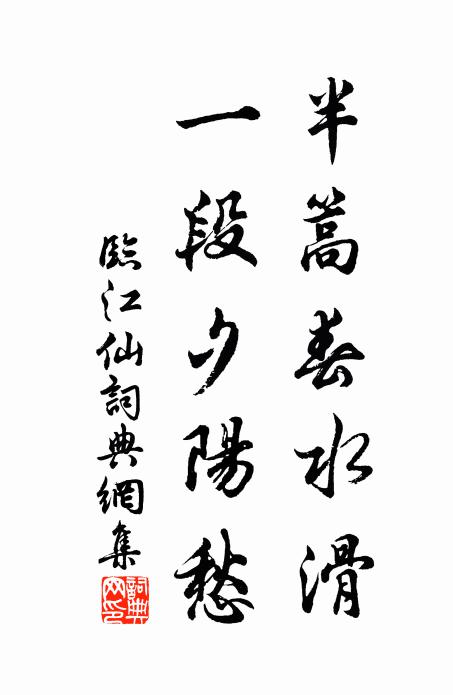 半篙春水滑
一段夕陽愁
臨江仙詞典網集
詞典
网印